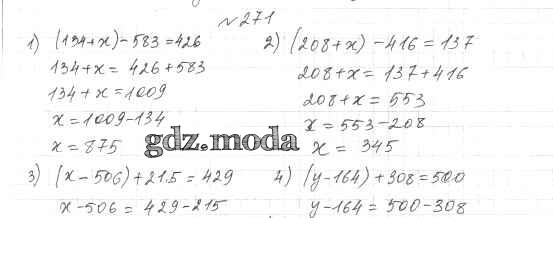 № 271
1) (134+x)-583=426
134+x= 426+583
134+x=1009
x=1009-134
x=875
2) (208+x) -416=137
208+x= 137+416
208+x= 553
x=553-208
x= 345
gdz.moda
3) (x-506)+215=429
x-506= 429-215
4) (y-164)+308=500
y-164= 500-308